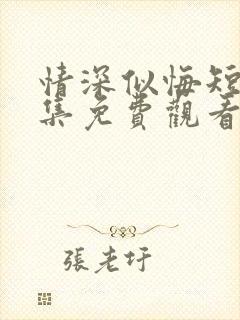 情深似悔短
集免費觀看
張老圩